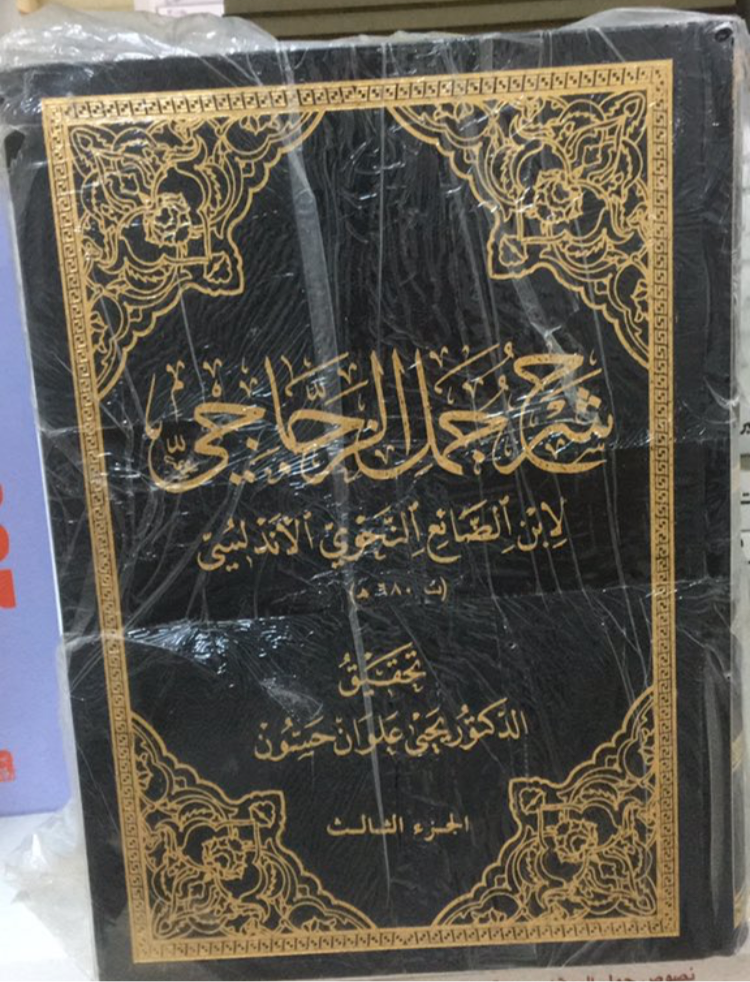 شَرْحُ جُمَلِ الزَّجَّاجِيِّ
لِابْنِ الصَّائِعِ النَّحْوِيِّ الأَنْدَلُسِيِّ
(ت ٦٨٠ هـ)
تَحْقِيْقُ
الدكتور يحيى علوان حسون
الجزء الثالث